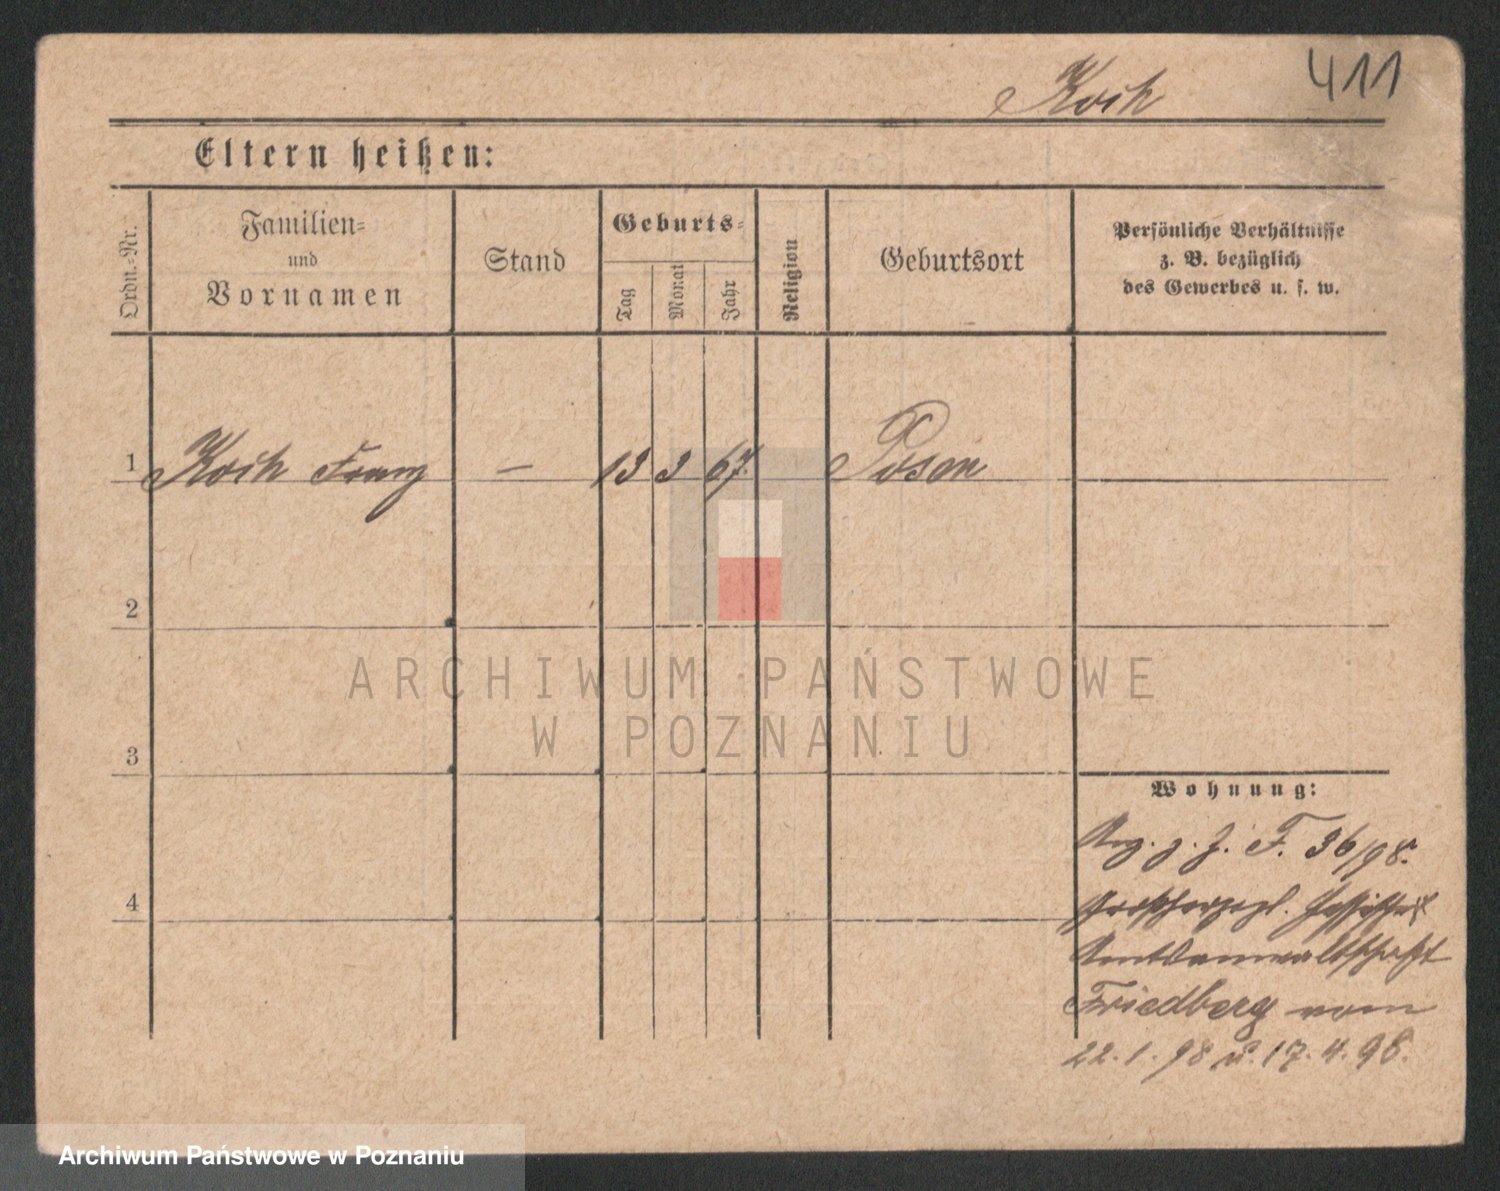 411
Koch
Eltern heißen:
Ordn.-Nr.
Familien-
und
Vornamen
Stand
Geburts-
Tag
Monat
Jahr
Religion
Geburtsort
Persönliche Verhältnisse
z. B. bezüglich
des Gewerbes u. s. w.
1 Koch Franz – 13 3 67. Posen
2
3
4
Wohnung:
Anz. z. J. F. 36/98.
Großherzogl. Hessische
Amtsanwaltschaft
Friedberg vom
22.1.98 u. 17.4.98.
ARCHIWUM PAŃSTWOWE
W POZNANIU
Archiwum Państwowe w Poznaniu